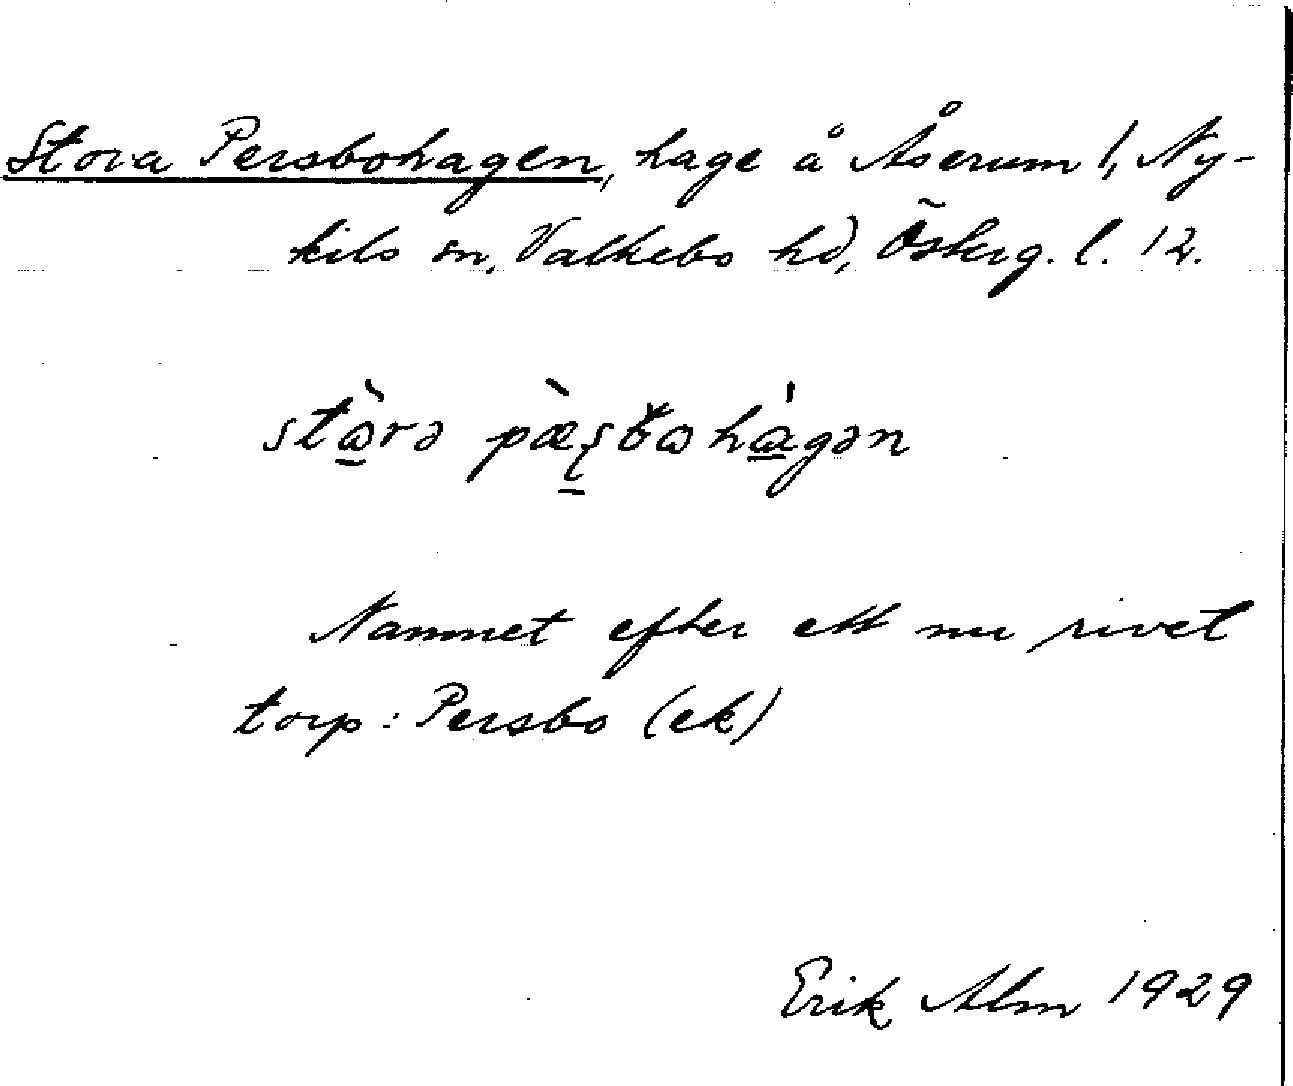 Stora Persbohagen, hage å Åserum 1, Ny-
kils sn, Valkebo hd, Österg. l. 12.
stɷ̀rə pæ̀ʂbɷhágən
Namnet efter ett nu rivet
torp: Persbo (ek)
Erik Alm 1929